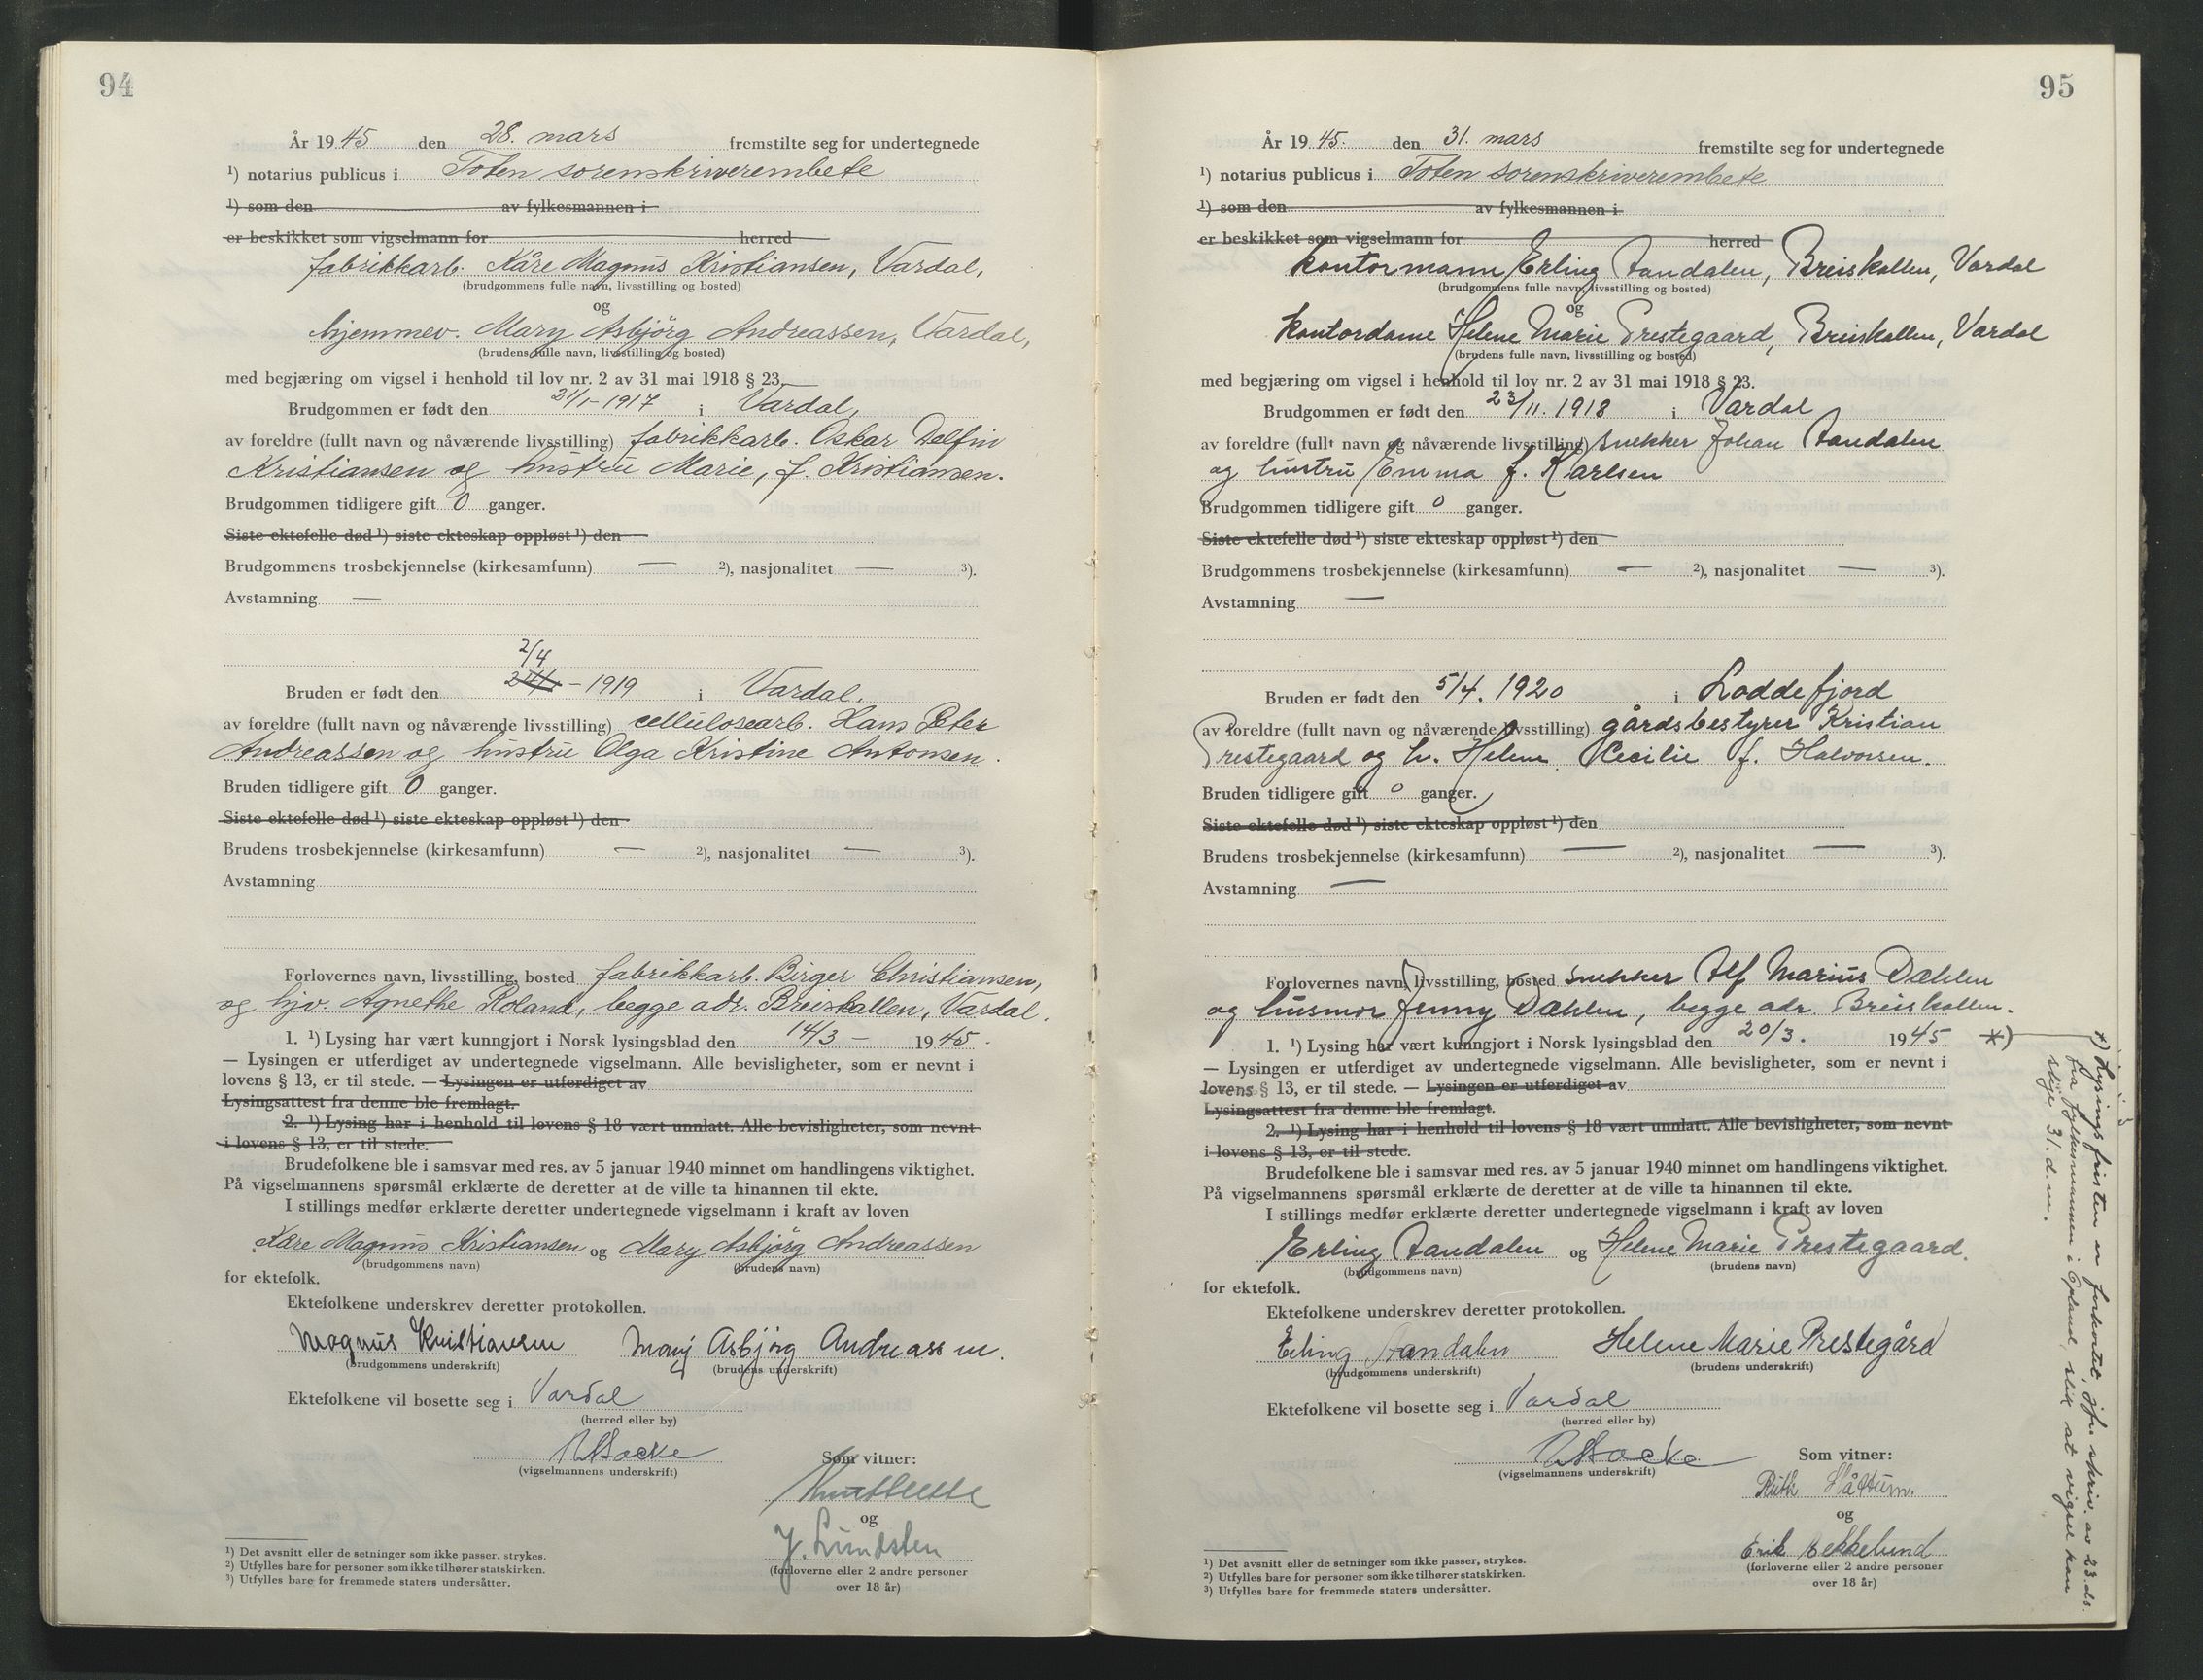 94
År 1945 den 28. mars fremstilte seg for undertegnede
¹) notarius publicus i Toten sorenskriverembete
¹) som den av fylkesmannen i
er beskikket som vigselmann for herred
fabrikkarb. Kåre Magnus Kristiansen, Vardal,
(brudgommens fulle navn, livsstilling og bosted)
og
hjemmev. Mary Asbjörg Andreassen, Vardal,
(brudens fulle navn, livsstilling og bosted)
med begjæring om vigsel i henhold til lov nr. 2 av 31 mai 1918 § 23.
Brudgommen er født den 21/1-1917 i Vardal,
av foreldre (fullt navn og nåværende livsstilling) fabrikkarb. Oskar Delfin
Kristiansen og hustru Marie, f. Kristiansen.
Brudgommen tidligere gift 0 ganger.
Siste ektefelle død ¹) siste ekteskap oppløst ¹) den
Brudgommens trosbekjennelse (kirkesamfunn) — ²), nasjonalitet — ³).
Avstamning —
2/4
Bruden er født den - 1919 i Vardal.
av foreldre (fullt navn og nåværende livsstilling) cellulosearb. Hans Peter
Andreassen og hustru Olga Kristine Antonsen.
Bruden tidligere gift 0 ganger.
Siste ektefelle død ¹) siste ekteskap oppløst ¹) den
Brudens trosbekjennelse (kirkesamfunn) — ²), nasjonalitet — ³).
Avstamning
Forlovernes navn, livsstilling, bosted fabrikkarb. Birger Christiansen,
og hjv. Agnethe Roland, begge adr. Breiskallen, Vardal.
1. ¹) Lysing har vært kunngjort i Norsk lysingsblad den 14/3 - 1945.
— Lysingen er utferdiget av undertegnede vigselmann. Alle bevisligheter, som er nevnt i
lovens § 13, er til stede. — Lysingen er utferdiget av
Lysingsattest fra denne ble fremlagt.
2. ¹) Lysing har i henhold til lovens § 18 vært unnlatt. Alle bevisligheter, som nevnt
i lovens § 13, er til stede.
Brudefolkene ble i samsvar med res. av 5 januar 1940 minnet om handlingens viktighet.
På vigselmannens spørsmål erklærte de deretter at de ville ta hinannen til ekte.
I stillings medfør erklærte deretter undertegnede vigselmann i kraft av loven
Kåre Magnus Kristiansen og Mary Asbjörg Andreassen
(brudgommens navn) (brudens navn)
for ektefolk.
Ektefolkene underskrev deretter protokollen.
Magnus Kristiansen Mary Asbjørg Andreassen.
(brudgommens underskrift) (brudens underskrift)
Ektefolkene vil bosette seg i Vardal
(herred eller by)
(vigselmannens underskrift)
Som vitner:
og
J. Lundsten
(forloverne eller 2 andre personer
over 18 år)
¹) Det avsnitt eller de setninger som ikke passer, strykes.
²) Utfylles bare for personer som ikke tilhører statskirken.
³) Utfylles bare for fremmede staters undersåtter.
95
År 1945. den 31. mars fremstilte seg for undertegnede
¹) notarius publicus i Toten sorenskriverembete
¹) som den av fylkesmannen i
er beskikket som vigselmann for herred
kontormann Erling Aandalen, Breiskallen, Vardal
(brudgommens fulle navn, livsstilling og bosted)
og
kontordame Helene Marie Prestegaard, Breiskallen, Vardal
(brudens fulle navn, livsstilling og bosted)
med begjæring om vigsel i henhold til lov nr. 2 av 31 mai 1918 § 23.
Brudgommen er født den 23/11. 1918 i Vardal
av foreldre (fullt navn og nåværende livsstilling) snekker Johan Aandalen
og hustru Emma f. Karlsen
Brudgommen tidligere gift 0 ganger.
Siste ektefelle død ¹) siste ekteskap oppløst ¹) den
Brudgommens trosbekjennelse (kirkesamfunn) — ²), nasjonalitet — ³).
Avstamning —
Bruden er født den 5/4. 1920 i Loddefjord
av foreldre (fullt navn og nåværende livsstilling) gårdsbestyrer Kristian
Prestegaard og h. Helene Cecilie f. Halvorsen.
Bruden tidligere gift 0 ganger.
Siste ektefelle død ¹) siste ekteskap oppløst ¹) den
Brudens trosbekjennelse (kirkesamfunn) — ²), nasjonalitet — ³).
Avstamning —
Forlovernes navn, livsstilling, bosted snekker Alf Marius Dæhlen
og husmor Jenny Dæhlen, begge adr Breiskallen.
1. ¹) Lysing har vært kunngjort i Norsk lysingsblad den 20/3. 1945 *)
— Lysingen er utferdiget av undertegnede vigselmann. Alle bevisligheter, som er nevnt i
lovens § 13, er til stede. — Lysingen er utferdiget av
Lysingsattest fra denne ble fremlagt.
2. ¹) Lysing har i henhold til lovens § 18 vært unnlatt. Alle bevisligheter, som nevnt
i lovens § 13, er til stede.
Brudefolkene ble i samsvar med res. av 5 januar 1940 minnet om handlingens viktighet.
På vigselmannens spørsmål erklærte de deretter at de ville ta hinannen til ekte.
I stillings medfør erklærte deretter undertegnede vigselmann i kraft av loven
Erling Aandalen og Helene Marie Prestegaard.
(brudgommens navn) (brudens navn)
for ektefolk.
Ektefolkene underskrev deretter protokollen.
Erling Aandalen Helene Marie Prestegård
(brudgommens underskrift) (brudens underskrift)
Ektefolkene vil bosette seg i Vardal
(herred eller by)
(vigselmannens underskrift)
Som vitner:
Ruth Slåttum.
og
Erik Bekkelund
(forloverne eller 2 andre personer
over 18 år)
¹) Det avsnitt eller de setninger som ikke passer, strykes.
²) Utfylles bare for personer som ikke tilhører statskirken.
³) Utfylles bare for fremmede staters undersåtter.
*) Lysingsfristen er forkortet, jfr. skriv. av 23. ds.
fra fylkesmannen i Opland, slik at vigsel kan
skje 31. d. m.